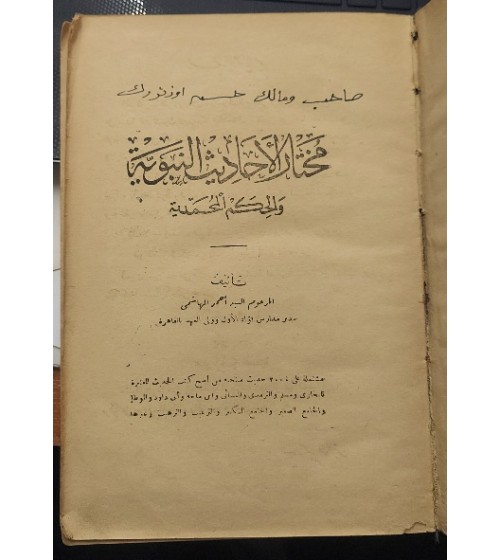 صاحب ومالك حسن اوزتورك
مختار الأحاديث النبوية
والحكم المحمدية
تأليف
المرحوم السيد أحمد الهاشمي
مدير مدارس فؤاد الأول وولي العهد بالقاهرة
مشتملة على حديث منتخبة من أصح كتب الحديث المعتبرة
كالبخاري ومسلم والترمذي والنسائي وابن ماجه وأبي داود والموطأ
والجامع الصغير والجامع الكبير والترغيب والترهيب وغيرها